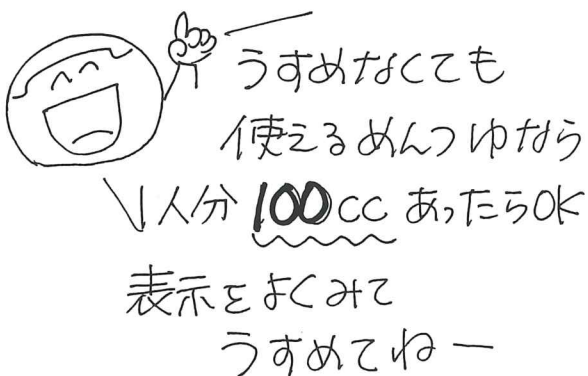 うすめなくても
使えるめんつゆなら
1人分100ccあったらOK
表示をよくみて
うすめてねー